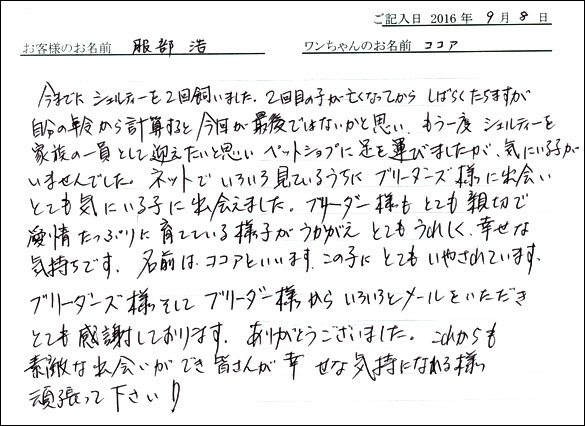 ご記入日 2016年 9月 8日
お客様のお名前 服部 浩 ワンちゃんのお名前 ココア
今までに シェルティーを2回飼いました。2回目の子が亡くなってから しばらくたちますが
自分の年令から計算すると今回が最後ではないかと思い、もう一度 シェルティーを
家族の一員として迎えたいと思い ペットショップに足を運びましたが、気にいる子が
いませんでした。ネットでいろいろ見ているうちに ブリーダーズ様に出会い
とても気にいる子に出会えました。ブリーダー様も とても親切で
愛情たっぷりに育てている様子がうかがえ とてもうれしく、幸せな
気持ちです。名前は、ココアといいます。この子に とてもいやされています。
ブリーダーズ様そして ブリーダー様から いろいろとメールをいただき
とても感謝しております。ありがとうございました。これからも
素敵な出会いができ 皆さんが幸せな気持になれる様
頑張って下さい!